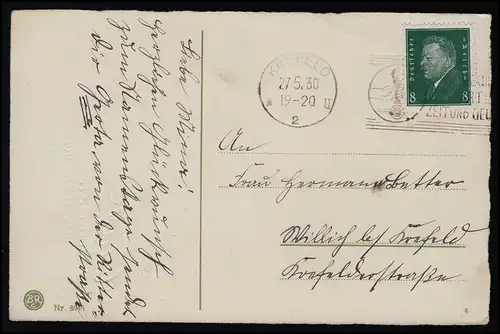 Liebe Mama!
Herzlichen Glückwunsch
zum Namenstage sendet
die Greta von der Ritter-
straße
BR
Nr. 80
KREFELD
27.5.30
19-20 U
* 2
Deutsches Reich
8 8
ZEIT UND GEL
An
Frau Hermann Better
Willich b/ Krefeld
Krefelderstraße